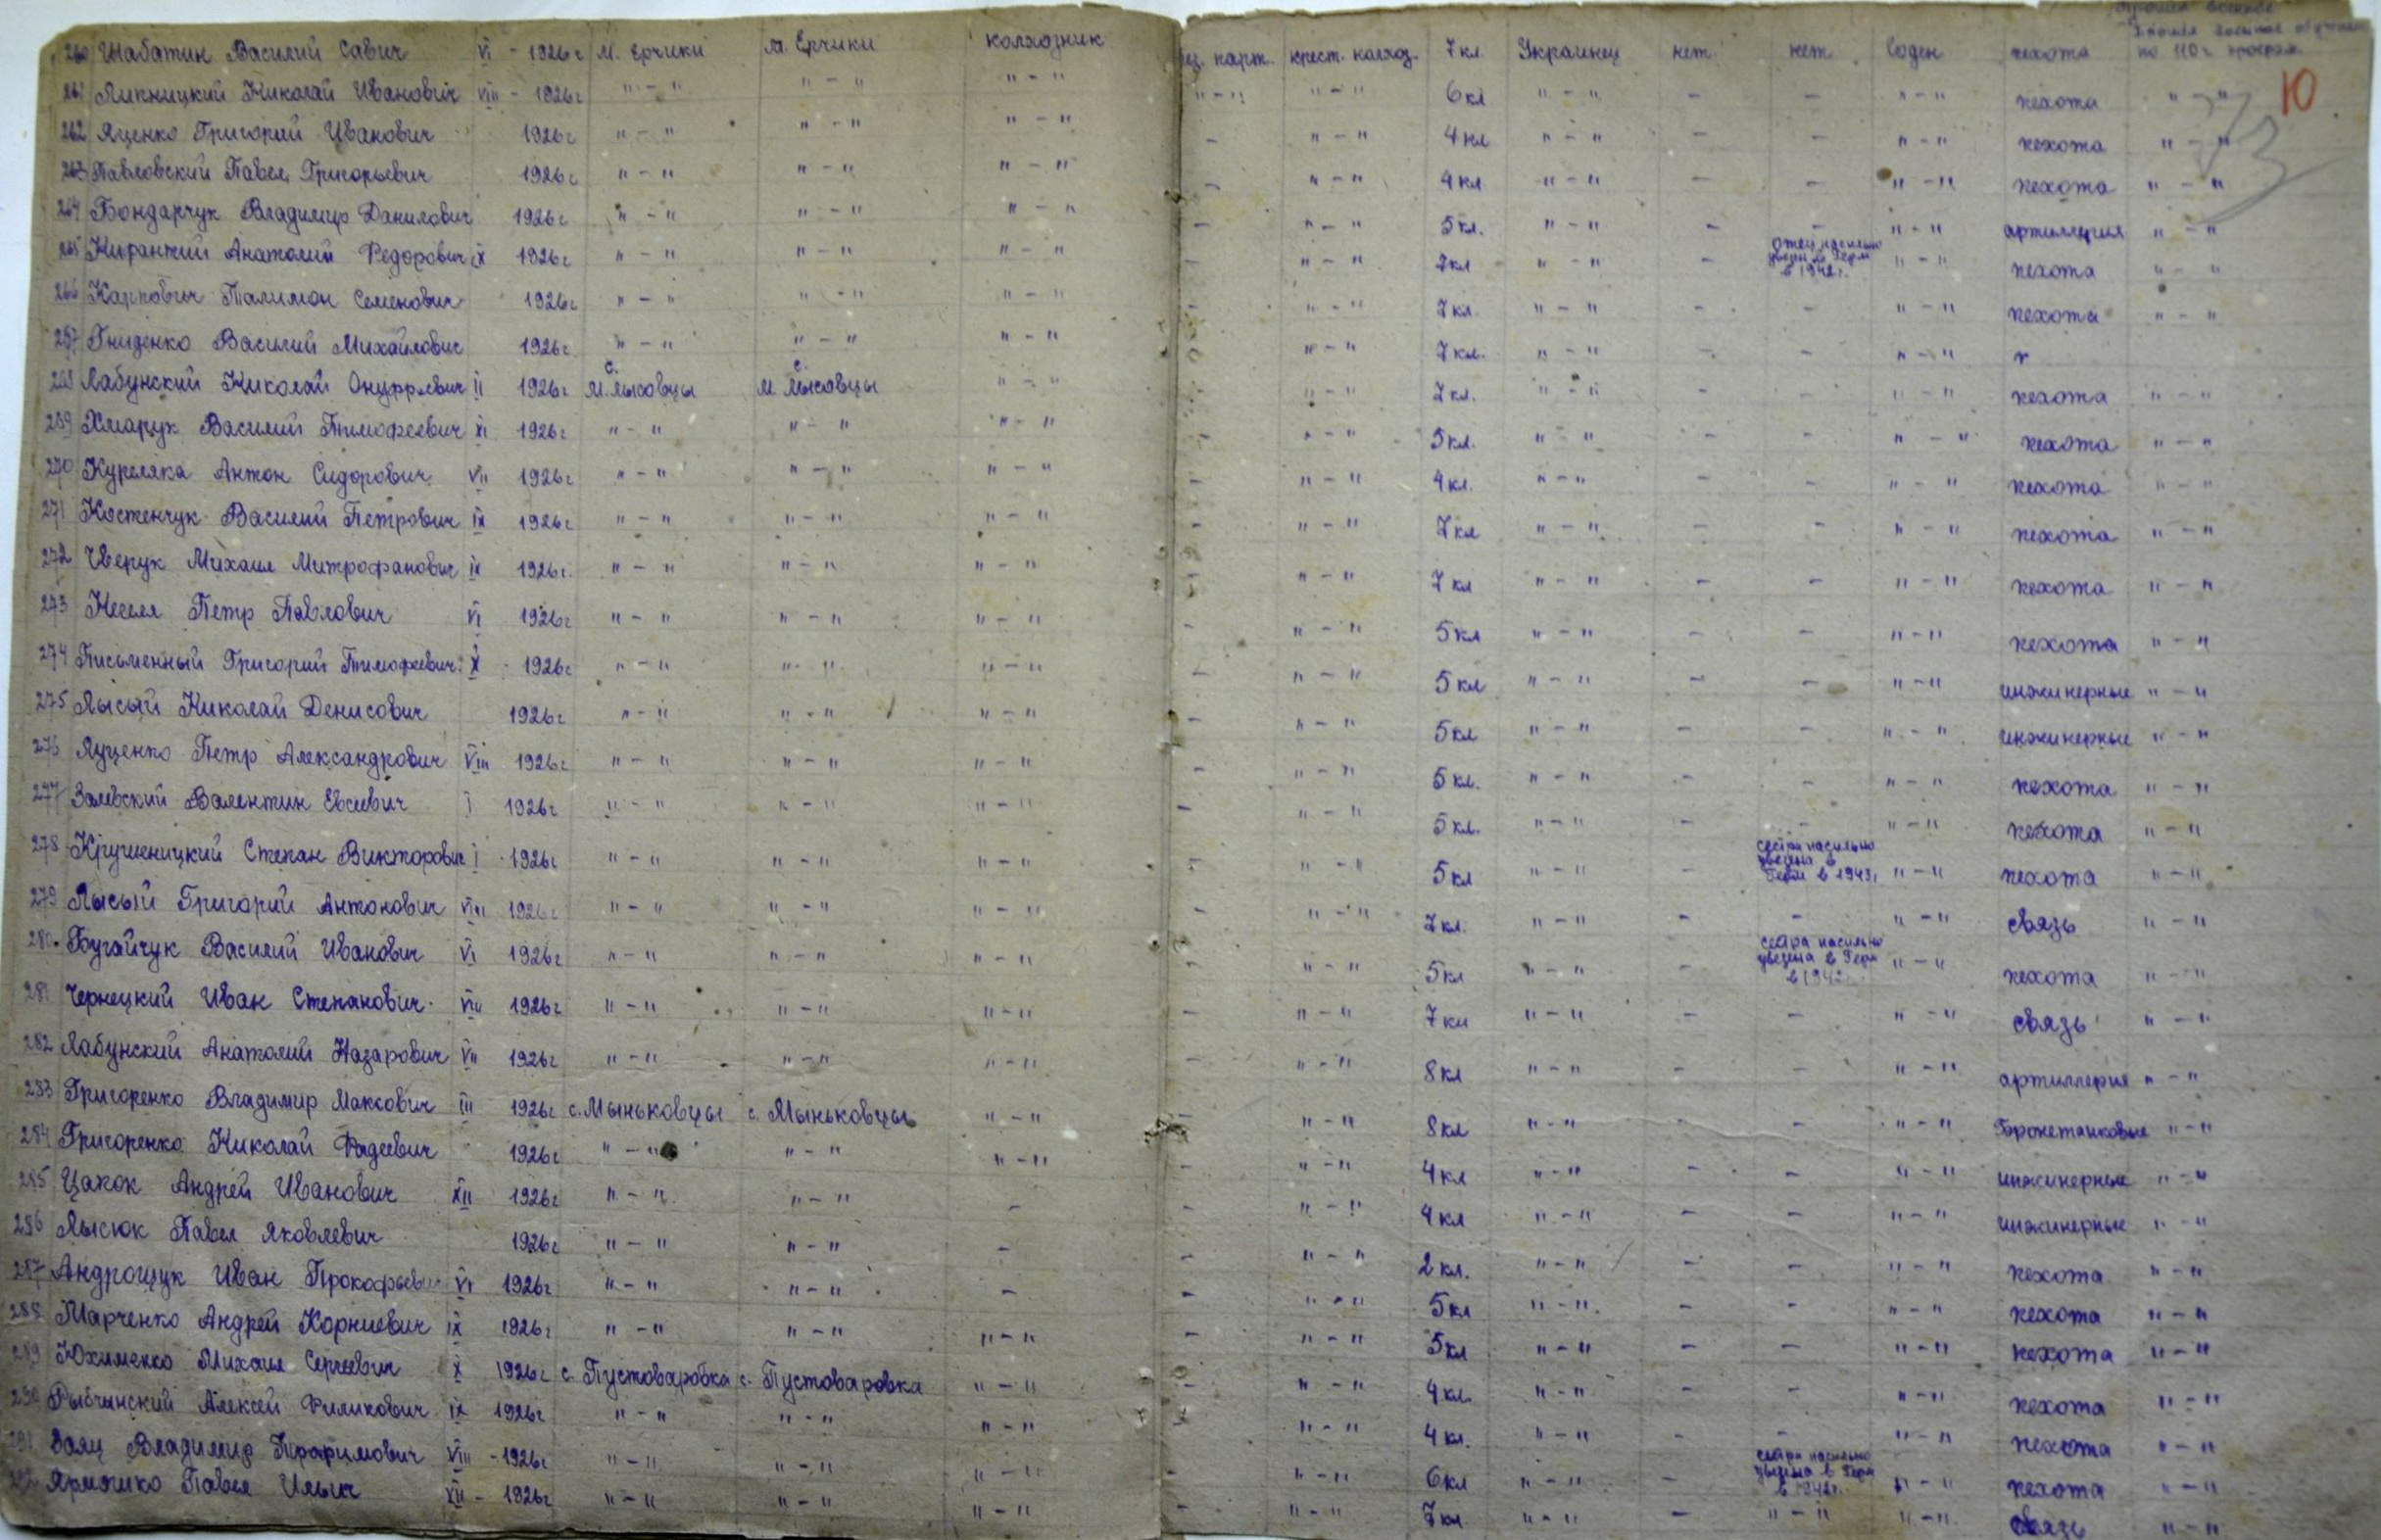 прошел военное
Прошел военное обучение
по 110 ч. програм.
10
260 Шабатин Василий Савич VI - 1926г М. Ерчики м. Ерчики колхозник парт. крест. колхоз. 7 кл. Украинец нет. нет Годен пехота
261 Липницкий Николай Иванович VIII - 1926г " - " " - " " - " " - " " - " 6 кл " - " - - " - " пехота " - "
262 Яценко Григорий Иванович 1926г " - " " - " " - " - " - " 4 кл " - " - - " - " пехота " - "
263 Павловский Павел Григорьевич 1926г " - " " - " " - " - " - " 4 кл " - " - - " - " пехота " - "
264 Бондарчук Владимир Данилович 1926г " - " " - " " - " - " - " 5 кл. " - " - - " - " артиллерия " - "
265 Анатолий Федорович IX 1926г " - " " - " " - " - " - " 7 кл " - " - отец насильно увезен в Герм в 1942г. " - " пехота " - "
266 Карпович Палимон Семенович 1926г " - " " - " " - " - " - " 7 кл. " - " - - " - " пехота " - "
267 Гниденко Василий Михайлович 1926г " - " " - " " - " - " - " 7 кл. " - " - - " - "
268 Лабунский Николай Онуфриевич II 1926г с. Лысовцы с. Лысовцы " - " - " - " 7 кл. " - " - - " - " пехота " - "
269 Хмарук Василий Тимофеевич XI 1926г " - " " - " " - " - " - " 5 кл. " - " - - " - " пехота " - "
270 Куреляка Антон Сидорович VII 1926г " - " " - " " - " - " - " 4 кл. " - " - - " - " пехота " - "
271 Костенчук Василий Петрович IX 1926г " - " " - " " - " - " - " 7 кл " - " - - " - " пехота " - "
272 Чверук Михаил Митрофанович IX 1926г. " - " " - " " - " - " - " 7 кл " - " - - " - " пехота " - "
273 Кегеля Петр Павлович VI 1926г " - " " - " " - " - " - " 5 кл " - " - - " - " пехота " - "
274 Письменный Григорий Тимофеевич X 1926г " - " " - " " - " - " - " 5 кл " - " - - " - " инжинерные " - "
275 Лысый Николай Денисович 1926г " - " " - " " - " - " - " 5 кл " - " - - " - " инжинерные " - "
276 Луценко Петр Александрович VIII 1926г " - " " - " " - " - " - " 5 кл. " - " - - " - " пехота " - "
277 Залевский Валентин Евсеевич I 1926г " - " " - " " - " - " - " 5 кл. " - " - - " - " пехота " - "
278 Крушеницкий Степан Викторович I 1926г " - " " - " " - " - " - " 5 кл " - " - сестра насильно увезена в Герм в 1943г " - " пехота " - "
279 Лысый Григорий Антонович VIII 1926г " - " " - " " - " - " - " 7 кл. " - " - - " - " связь " - "
280 Бугайчук Василий Иванович VI 1926г " - " " - " " - " - " - " 5 кл " - " - сестра насильно увезена в Герм " - " пехота " - "
281 Чернецкий Иван Степанович VIII 1926г " - " " - " " - " - " - " 7 кл " - " - - " - " связь " - "
282 Лабунский Анатолий Назарович VII 1926г " - " " - " " - " - " - " 8 кл " - " - - " - " артиллерия " - "
283 Григоренко Владимир Максович III 1926г с. Мыньковцы с. Мыньковцы " - " - " - " 8 кл " - " - - " - " Бронетанковые " - "
284 Григоренко Николай Фадеевич 1926г " - " " - " " - " - " - " 4 кл " - " - - " - " инжинерные " - "
285 Цапок Андрей Иванович XII 1926г " - " " - " - - " - " 4 кл " - " - - " - " инжинерные " - "
286 Лысюк Павел Яковлевич 1926г " - " " - " - - " - " 2 кл. " - " - - " - " пехота " - "
287 Андрощук Иван Прокофьевич VI 1926г " - " " - " - - " - " 5 кл " - " - - " - " пехота " - "
288 Марченко Андрей Корниевич IX 1926г " - " " - " " - " - " - " 5 кл " - " - - " - " пехота " - "
289 Юхименко Михаил Сергеевич X 1926г с. Пустоваровка с. Пустоваровка " - " - " - " 4 кл. " - " - - " - " пехота " - "
290 Рыбчинский Алексей Филикович IX 1926г " - " " - " " - " - " - " 4 кл. " - " - - " - " пехота " - "
291 Заяц Владимир Трофимович VIII - 1926г " - " " - " " - " - " - " 6 кл " - " - сестра насильно увезена в Герм в 1942г. " - " пехота " - "
292 Ярмошко Павел Ильич XII - 1926г " - " " - " " - " - " - " 7 кл " - " - " - " " - " связь " - "